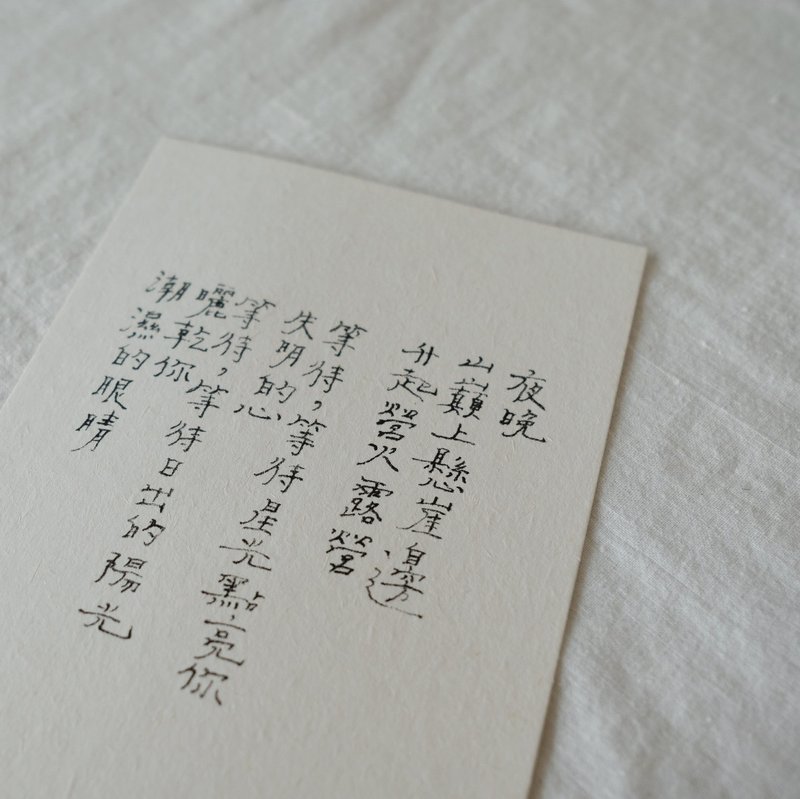 夜晚
山巔上懸崖邊
升起營火露營
等待，等待星光點亮你
失明的心
等待，等待日出的陽光
曬乾你
潮濕的眼睛